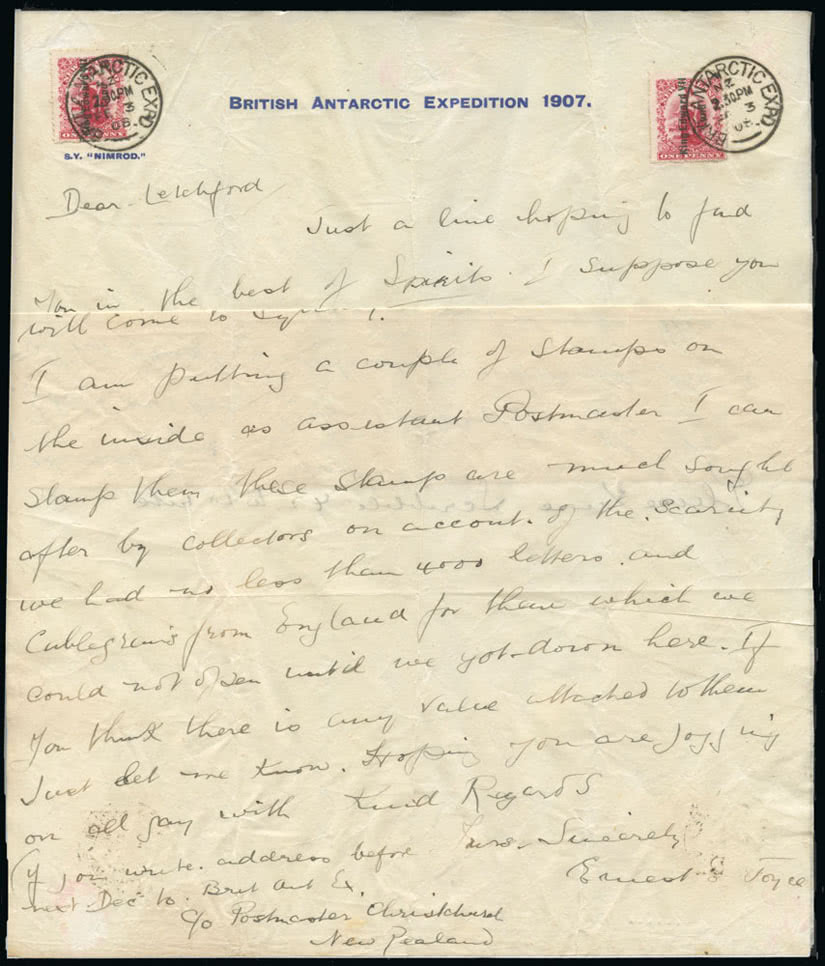 BRITISH ANTARCTIC EXPEDITION 1907.
BRIT. ANTARCTIC EXPD.
NZ
2.30PM
3
08
ONE PENNY
BRIT. ANTARCTIC EXPD.
NZ
2.30PM
3
08
King Edward VII
Land
ONE PENNY
S.Y. "NIMROD."
Dear Letchford
Just a line hoping to find
You in the best of Spirits. I suppose you
will come to
I am putting a couple of Stamps on
the inside as assistant Postmaster I can
Stamp them these Stamp are much sought
after by collectors on account. of the scarcity
we had no less than 4000 letters. and
Cablegrams from England for them which we
could not open until we got down here. If
You think there is any value attached to them
Just let me know. Hoping you are jogging
on all gay with Kind Regards
Yours Sincerely
Ernest E Joyce
(If you write. address before
next Dec to. Brit Ant Ex.
c/o Postmaster Christchurch
New Zealand